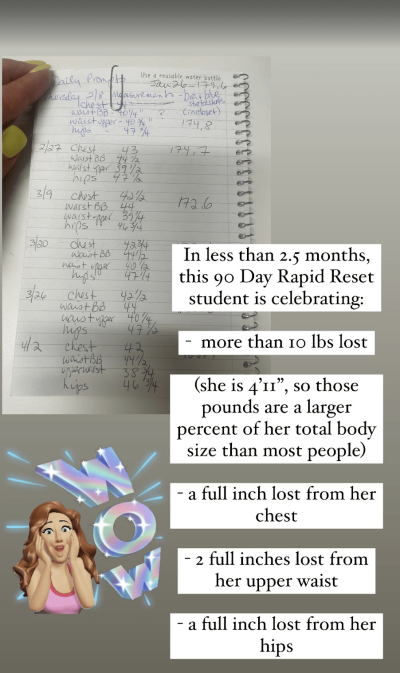 Daily Prompt
Use a reusable water bottle
Jan 26 - 179.6
Thursday 2/8 Measurements -
chest
waist BB - 40 1/4" ?
waist upper - 40 3/4"
174.8
hips - 47 3/4
2/27 Chest 43 174.7
waist BB 44 1/2
waist upper 39 1/2
hips 47 1/2
3/9 chest 42 1/2
waist BB 44 172.6
waist upper 39 1/4
hips 46 3/4
3/20 chest 42 3/4
waist BB 44 1/2
waist upper 40 1/2
hips 47 1/4
3/26 chest 42 1/2
waist BB 44
waist upper 40 1/4
hips 47 1/2
4/2 chest 42
waist BB 44 1/2
upper waist 38 3/4
hips 46 3/4
In less than 2.5 months,
this 90 Day Rapid Reset
student is celebrating:
- more than 10 lbs lost
(she is 4'11", so those
pounds are a larger
percent of her total body
size than most people)
- a full inch lost from her
chest
- 2 full inches lost from
her upper waist
- a full inch lost from her
hips
WOW